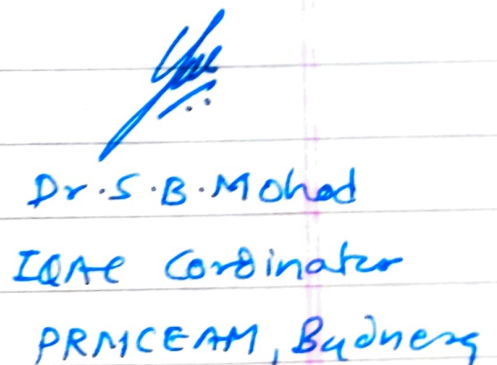 Dr.S.B.Mohod
IQAC Cordinator
PRMCEAM, Badnera